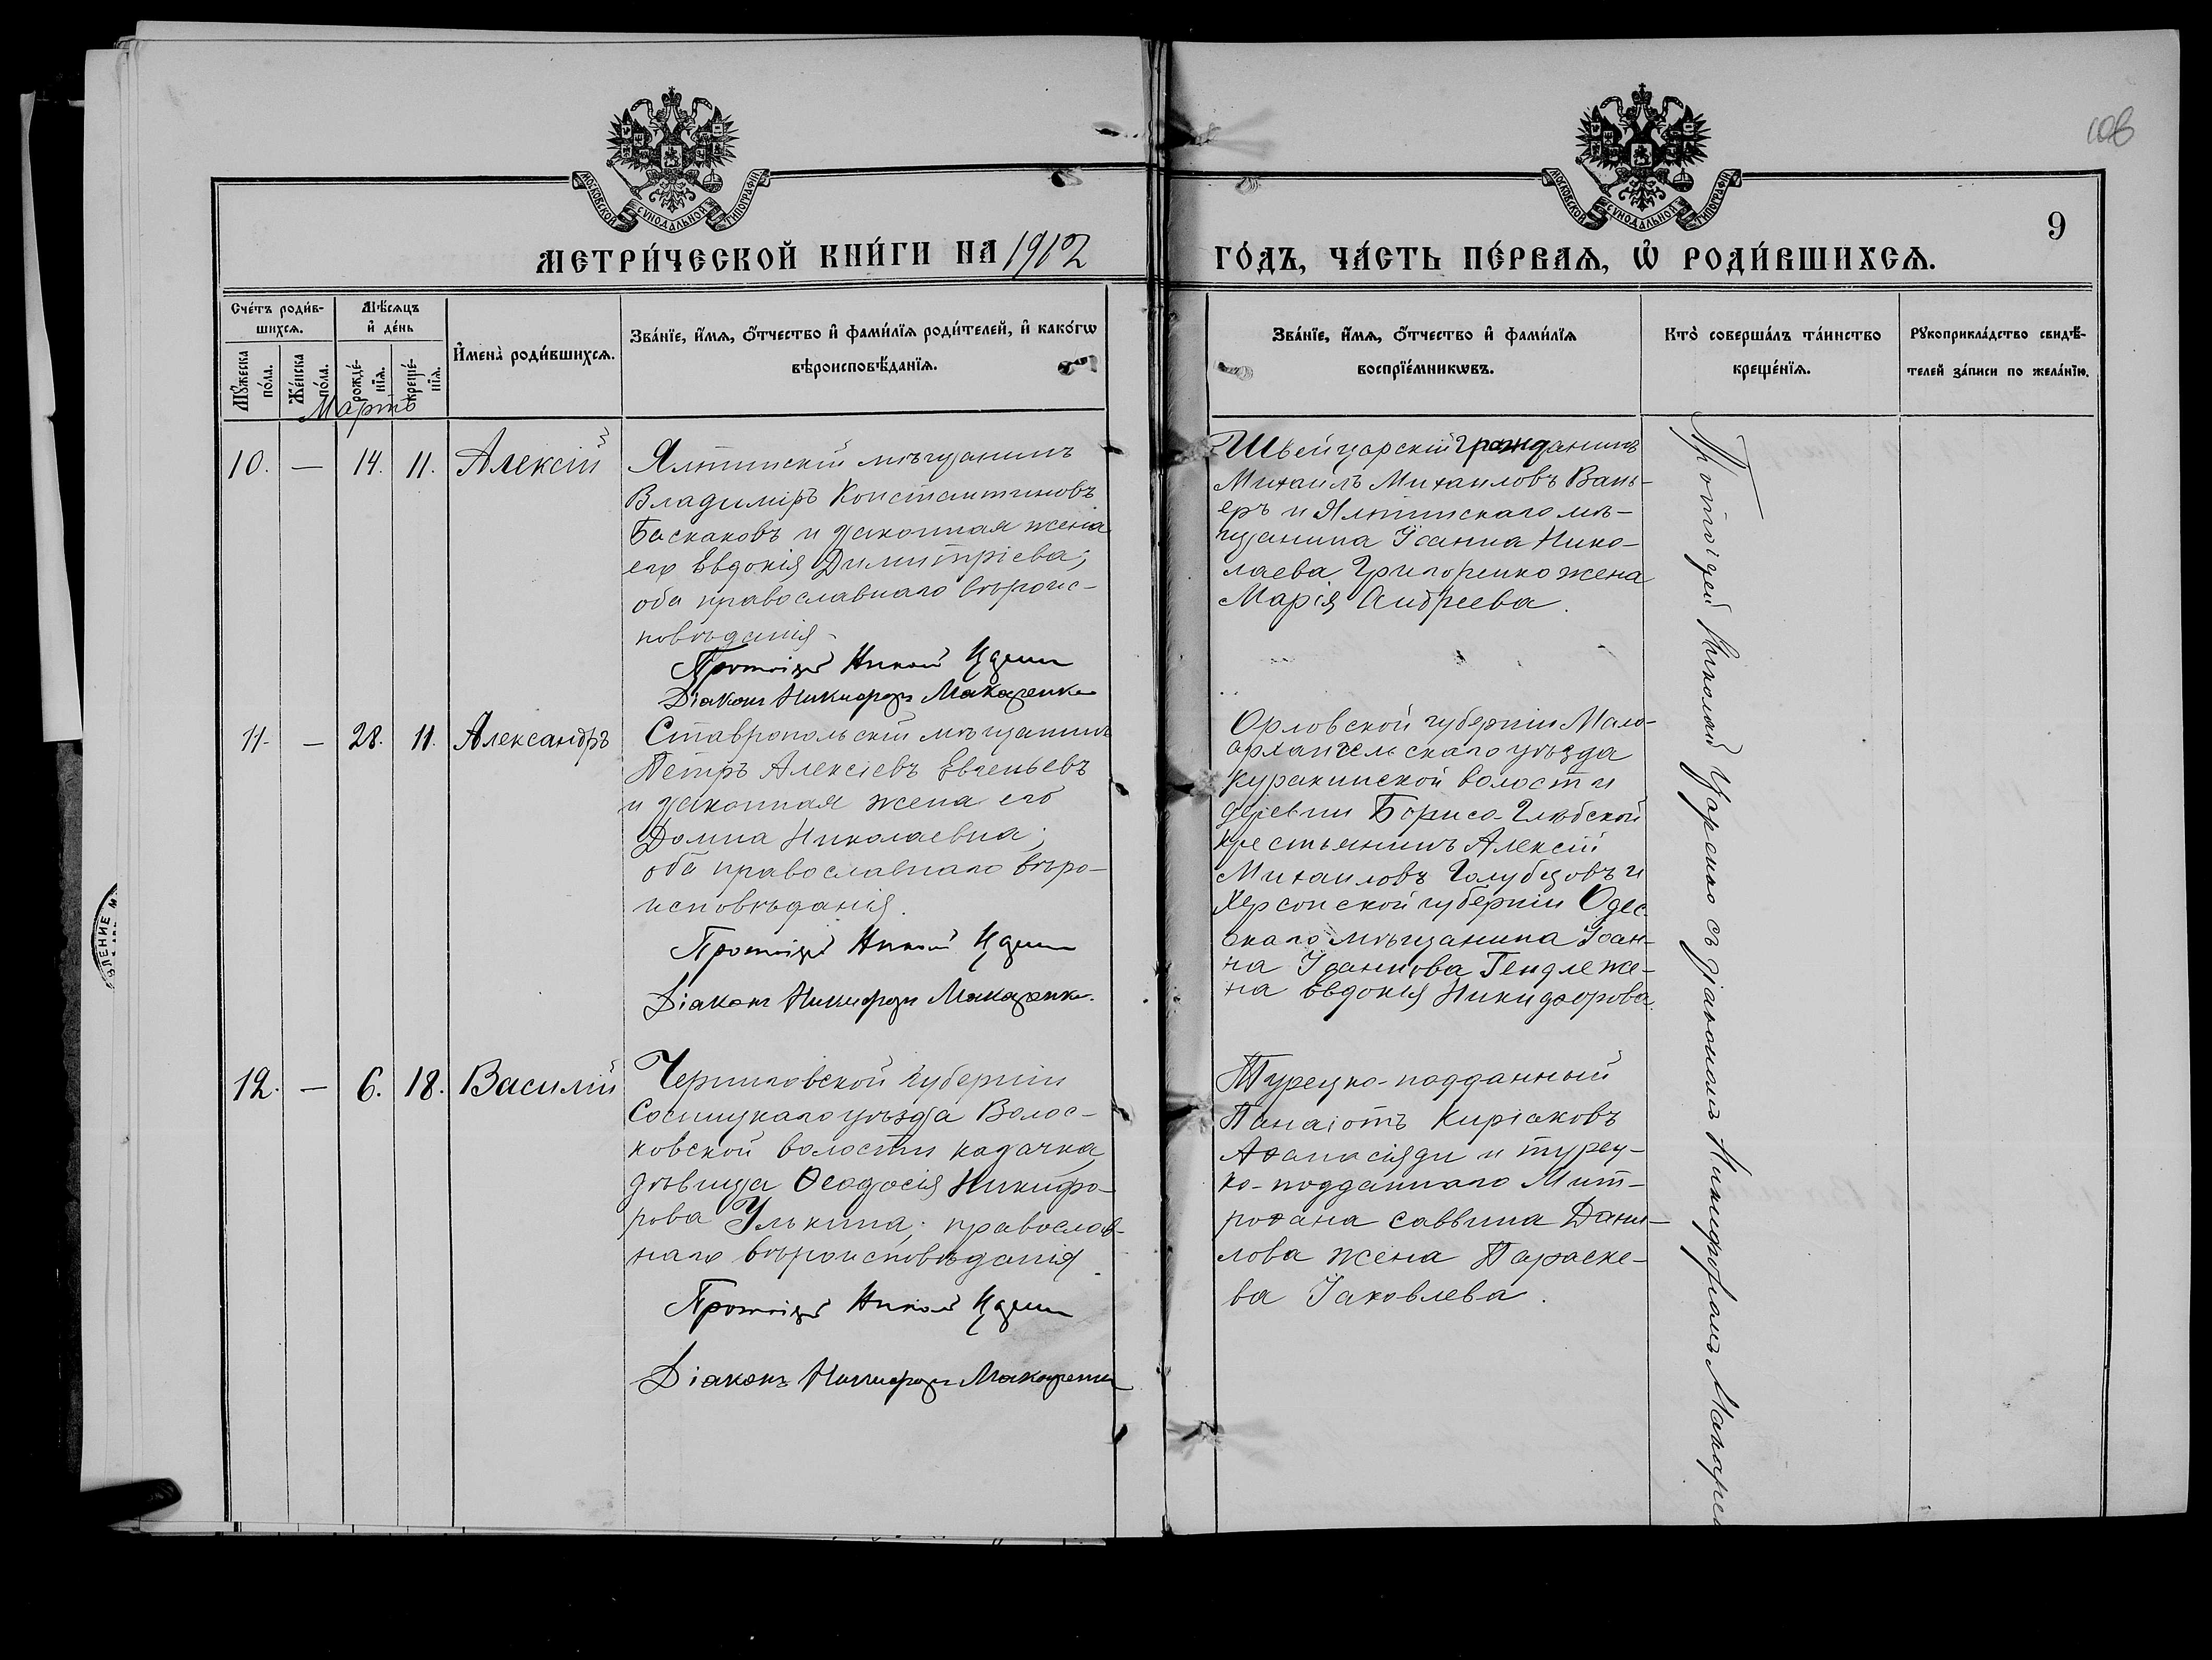 108
МОСКОВСКОЙ СѴНОДАЛЬНОЙ ТИПОГРАФІИ
МОСКОВСКОЙ СѴНОДАЛЬНОЙ ТИПОГРАФІИ
9
МЕТРИ́ЧЕСКОЙ КНИ́ГИ НА 1912
ГО́ДЪ, ЧА́СТЬ ПЕ́РВАѦ, Ѡ҆ РОДИ́ВШИХСѦ.
Сче́тъ роди́в-
шихсѧ.
Мꙋ́жеска
по́ла.
Же́нска
по́ла.
Мѣ́сѧцъ
и҆ де́нь
рожде́-
нїѧ.
креще́-
нїѧ.
И҆мена̀ роди́вшихсѧ.
Зва́нїе, и҆́мѧ, ѻ҆́тчество и҆ фами́лїѧ роди́телей, и҆ како́гѡ
вѣроисповѣ́данїѧ.
Зва́нїе, и҆́мѧ, ѻ҆́тчество и҆ фами́лїѧ
воспрїе́мникѡвъ.
Кто̀ соверша́лъ та́инство
креще́нїѧ.
Рꙋкоприкла́дство свидѣ́-
телей за́писи по жела́нїю.
Мартъ
10. — 14. 11. Алексій
Ялтинскій мѣщанинъ
Владиміръ Константиновъ
Баскаковъ и законная жена
его Евдокія Димитріева;
оба православнаго вѣроис-
повѣданія.
Протоіерей Николай
Діаконъ Никифоръ Макаренко
Швейцарскій гражданинъ
Михаилъ Михаиловъ Вань-
еръ и Ялтинскаго мѣ-
щанина Іоанна Нико-
лаева Григоренко жена
Марія Андреева.
11. — 28. 11. Александръ
Ставропольскій мѣщанинъ
Петръ Алексіевъ Евгеньевъ
и законная жена его
Домна Николаевна;
оба православнаго вѣро-
исповѣданія.
Протоіерей Николай
Діаконъ Никифоръ Макаренко.
Орловской губерніи Мало-
архангельскаго уѣзда
Куракинской волости
деревни Борисо-Глѣбской
крестьянинъ Алексій
Михаиловъ Голубцовъ и
Херсонской губерніи Одес-
скаго мѣщанина Іоан-
на Іоаннова Гендле же-
на Евдокія Никифорова.
12. — 6. 18. Василій
Черниговской губерніи
Сосницкаго уѣзда Волос-
ковской волости казачка
дѣвица Ѳеодосія Никифо-
рова Улькина; православ-
наго вѣроисповѣданія.
Протоіерей Николай
Діаконъ Никифоръ Макаренко
Турецко-подданный
Панаіотъ Киріаковъ
Аѳанасіяди и турец-
ко-подданнаго Мит-
роѳана Саввина Дани-
лова жена Параске-
ва Іаковлева.
Протоіерей Николай Царенко съ діакономъ Никифоромъ Макарен